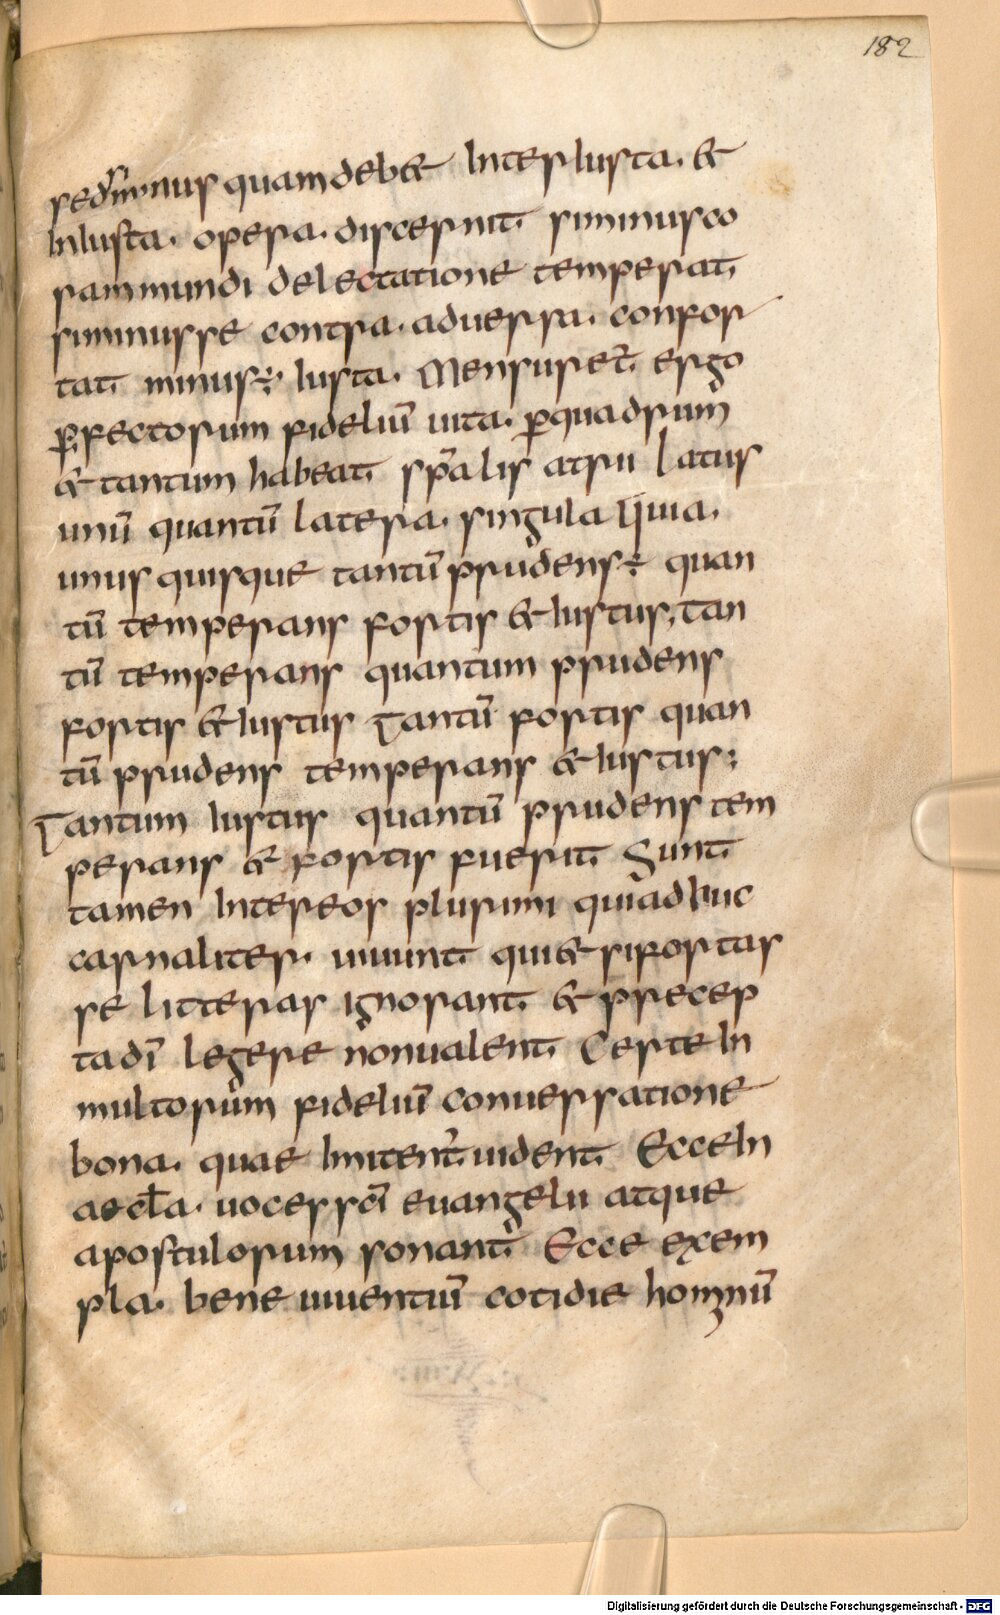 182
sed si minus quam debet inter iusta. et
iniusta. opera. discernit. si minus co
ram mundi delectatione temperat.
si minus se contra. aduersa. confor
tat. minus ÷ iusta. Mensuret̄ ergo
ꝑfectorum fideliū uita. ꝑquadrum
et tantum habeat. spāalis atrii latus
unū quantū latera. singula
unus quisque tantū prudens ÷ quan
tū temperans fortis et iustus, tan
tū temperans quantum prudens
fortis et iustus Tantū fortis quan
tū prudens temperans et iustus;
Tantum iustus quantū prudens tem
perans et fortis fuerit. Sunt.
tamen inter eos plurimi qui adhuc
carnaliter. uiuunt. qui et si fortas
se litteras ignorant. et precep
ta dī legere non ualent. Certe in
multorum fideliū conuersatione
bona. quae imitent̄ uident. Ecce in
aecl̄a. uoces scī euangelii atque
apostulorum sonant. Ecce exem
pla. bene uiuentiū cotidie hominū
Digitalisierung gefördert durch die Deutsche Forschungsgemeinschaft - DFG